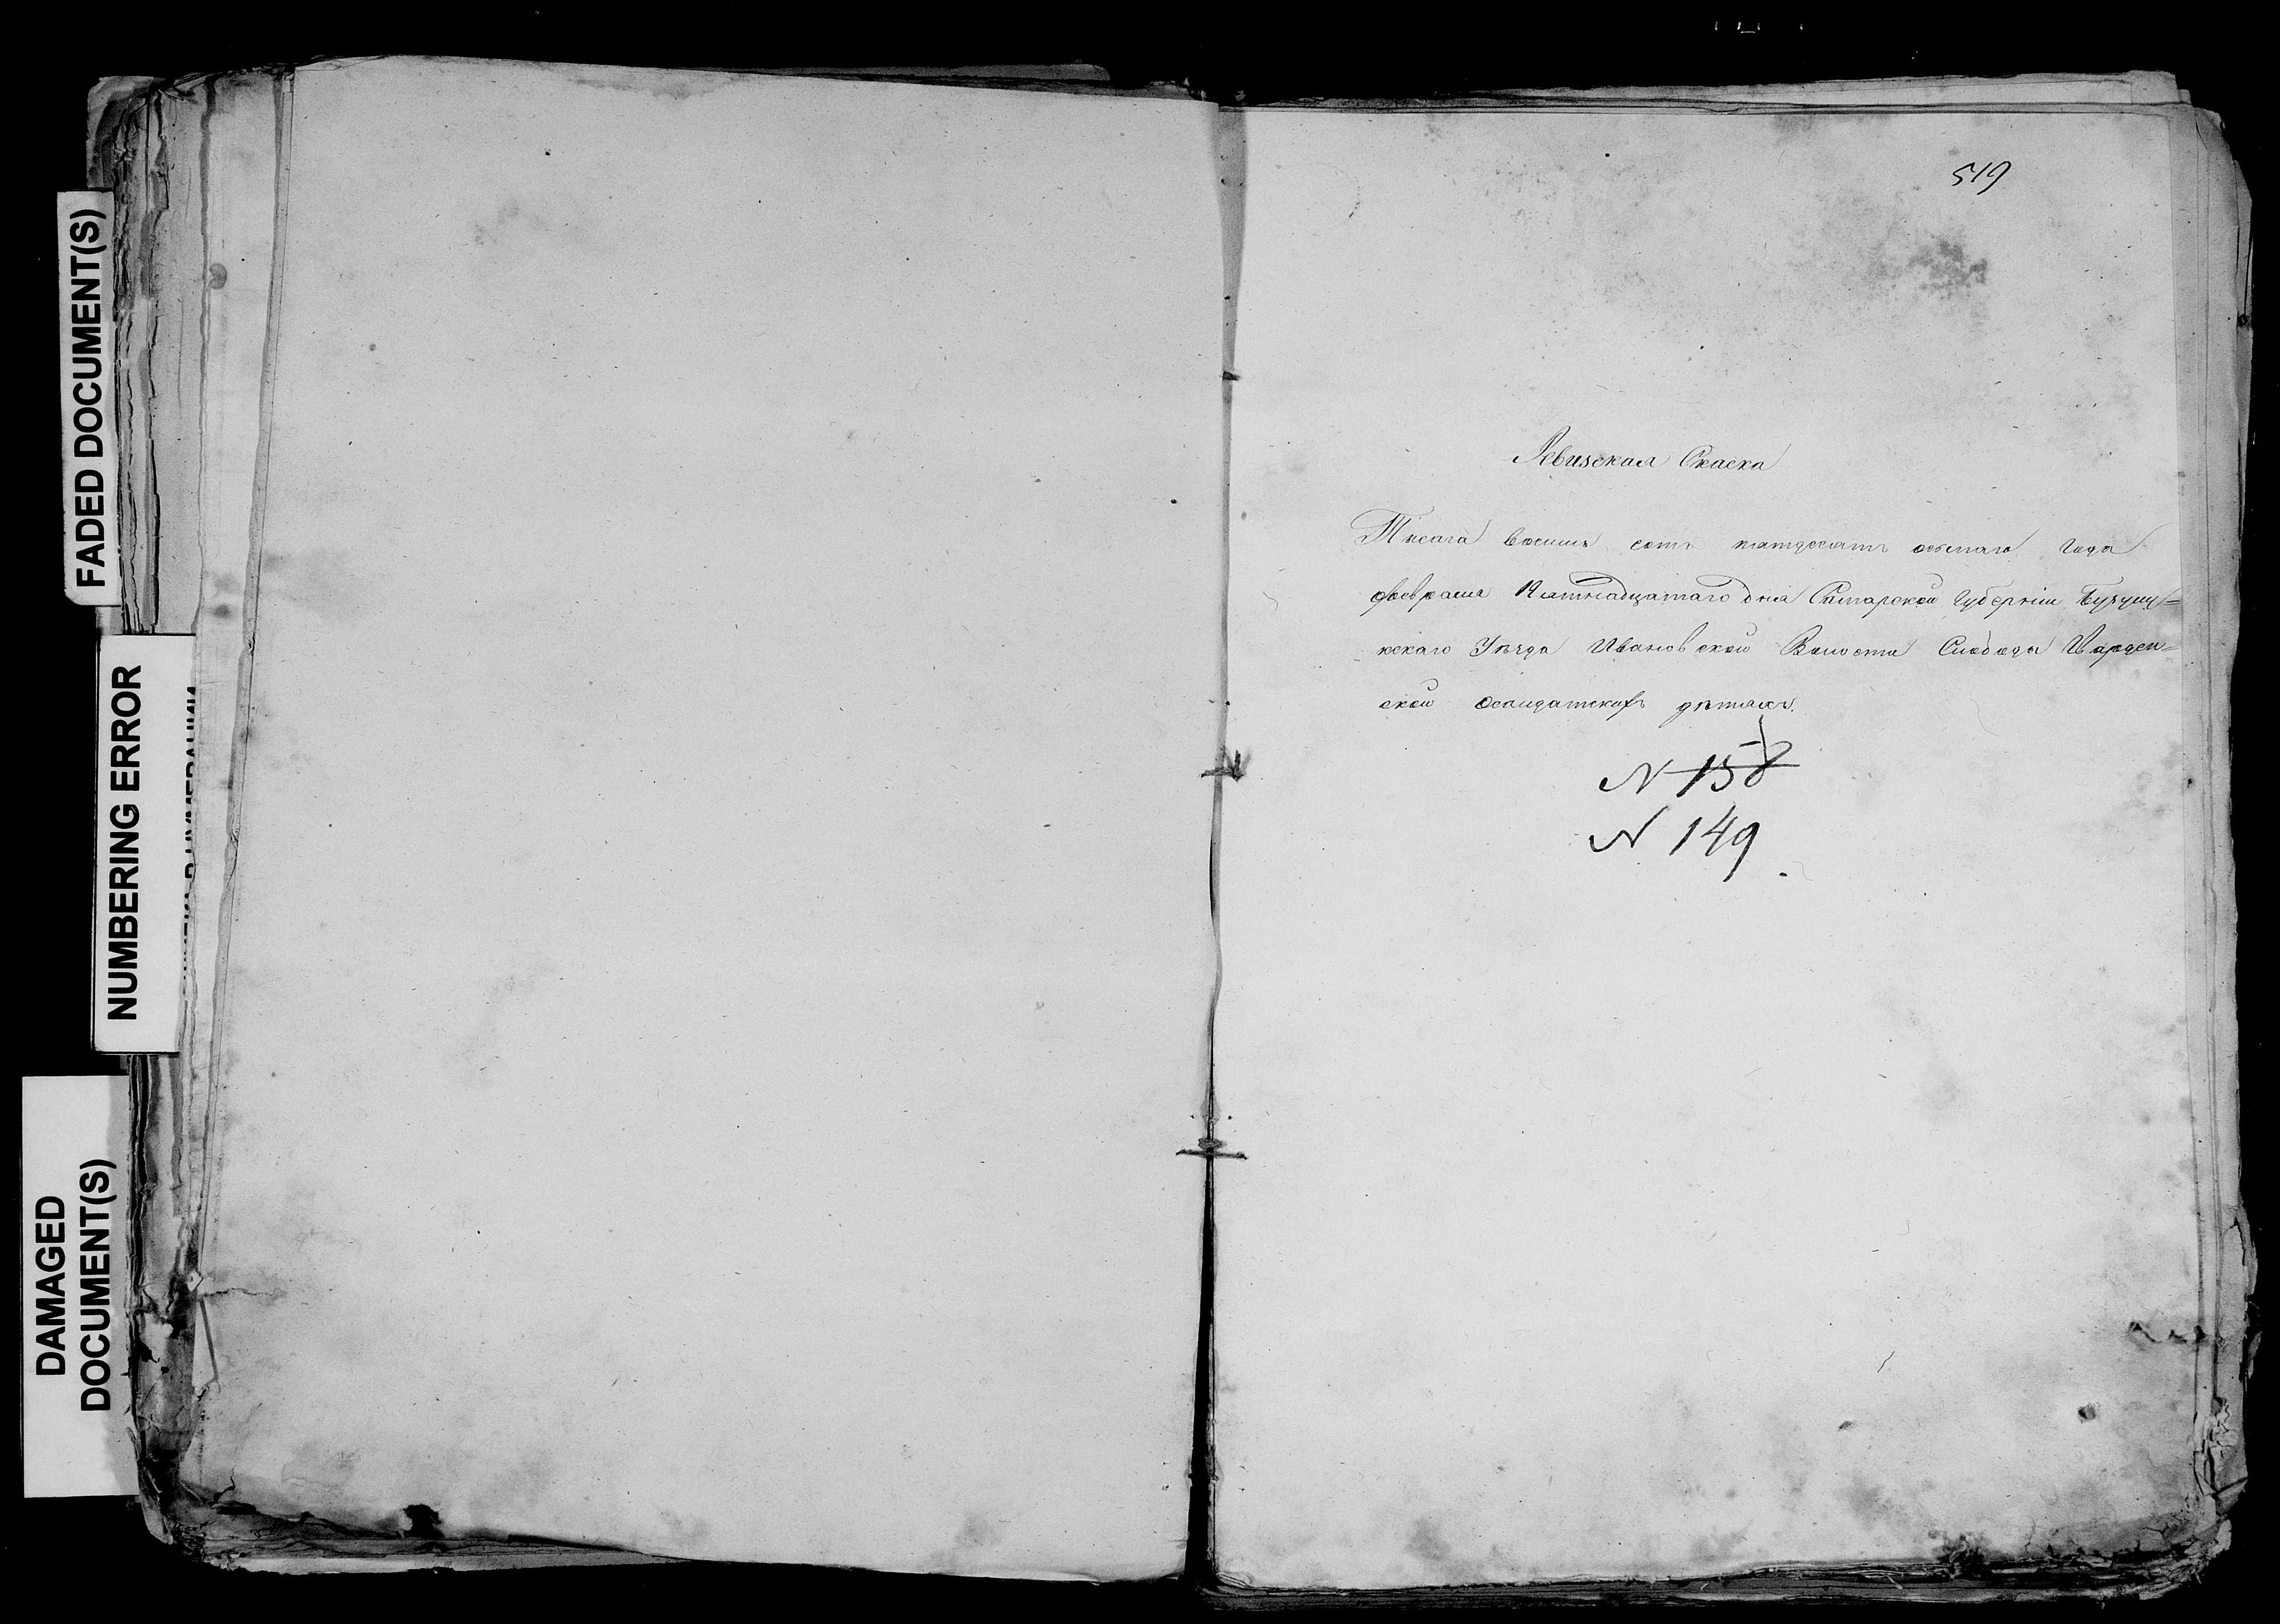 FADED DOCUMENT(S)
NUMBERING ERROR
DAMAGED
DOCUMENT(S)
519
Ревизская Скаска
Тысяча восемь сотъ пятдесятъ осьмаго Года
февраля Пятнадцатаго дня Самарской Губерніи Бузулу=
кскаго Уѣзда Ивановской Волости Слободы
ской Осолдатскихъ дѣтяхъ.
N 158
N 149